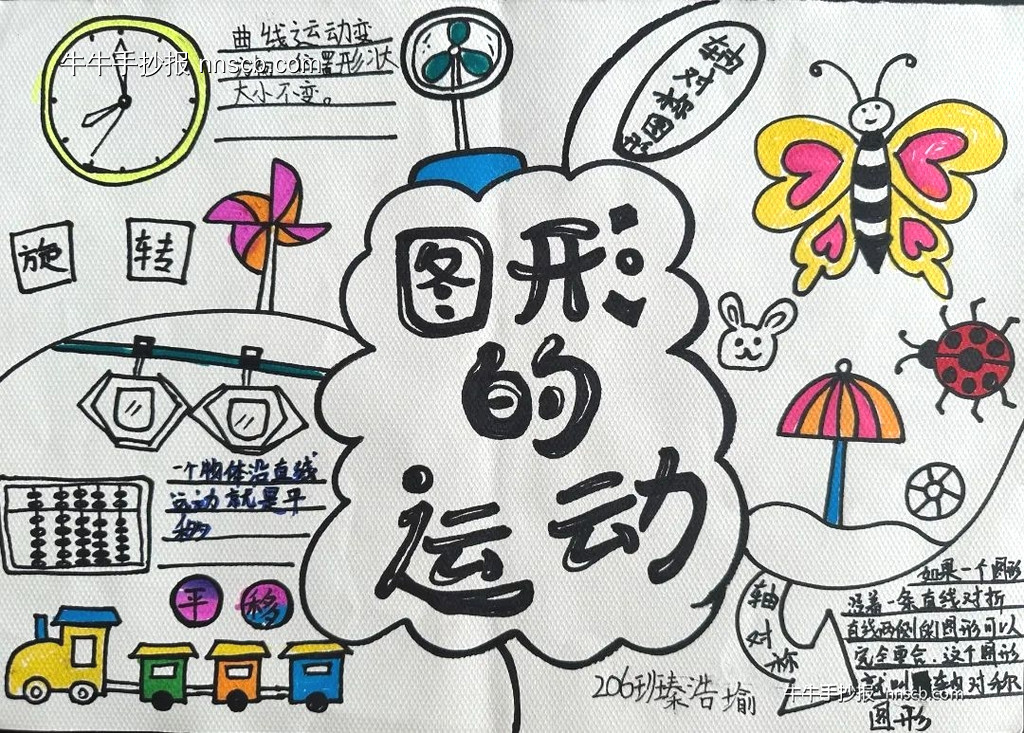 曲线运动变
置形状
大小不变。
牛牛手抄报 nnscb.com
轴对称图形
旋转
图形
的
运动
一个物体沿直线
运动就是平
移
平移
轴对称
如果一个图形
沿着一条直线对折
直线两侧的图形可以
完全重合.这个图形
就叫轴对称
图形
206班 浩瑜
牛牛手抄报 nnscb.com